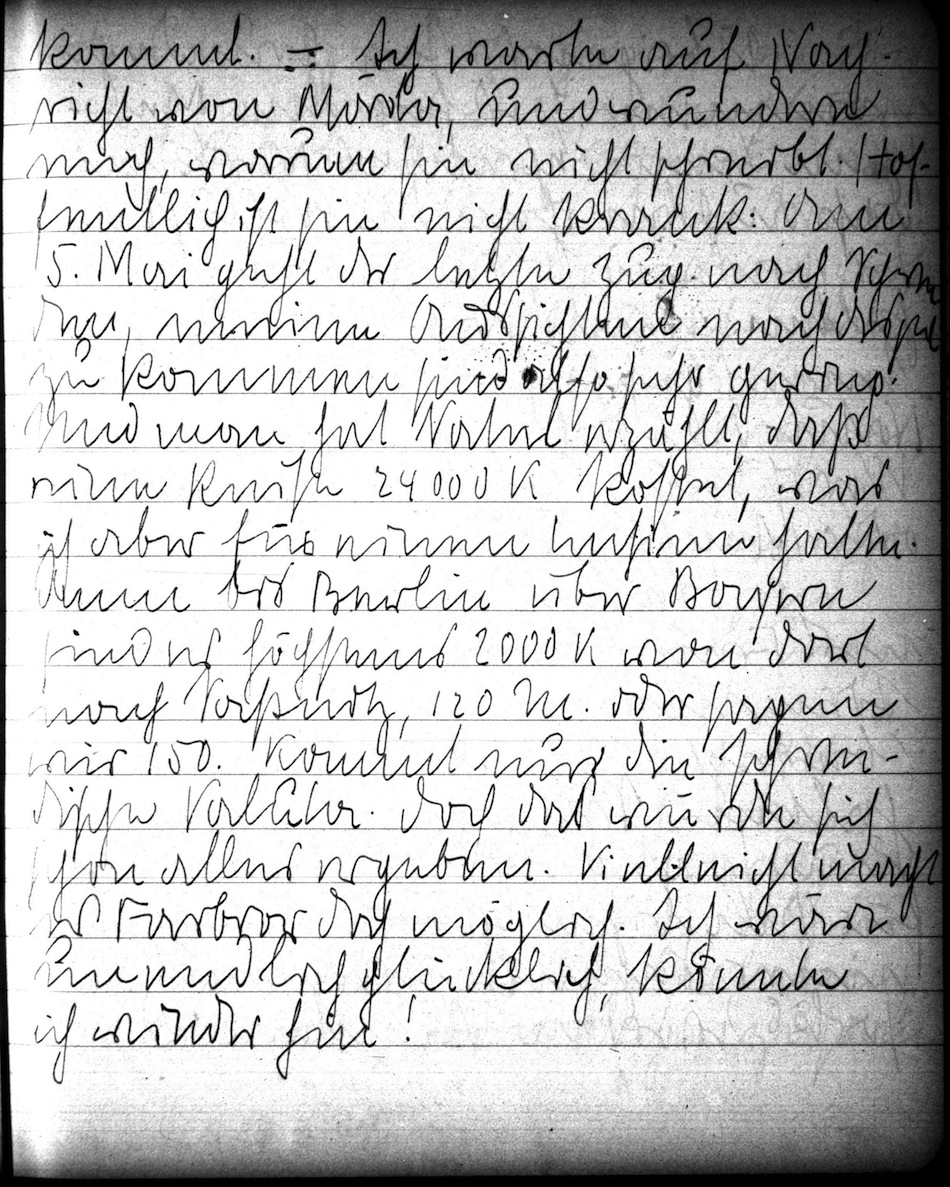 kommt. – Ich warte auf Nach-
richt von Märta, und wundere
mich, warum sie nicht schreibt. Hof-
fentlich ist sie nicht krank. Am
5. Mai geht der letzte Zug nach Schwe
den, meine Aussichten nach dort
zu kommen sind also sehr gering.
Und man hat Vater erzählt, daß
eine Reise 24000 K kostet, was
ich aber für einen Unsinn halte.
Denn bis Berlin über Bayern
sind es höchstens 2000 K von dort
nach Saßnitz, 120 M. oder sagen
wir 150. Kommt nur die schwe-
dische Valuta. Doch das würde sich
schon alles ergeben. Vielleicht macht
es Farbror doch möglich. Ich wäre
unendlich glücklich, könnte
ich wieder hin!